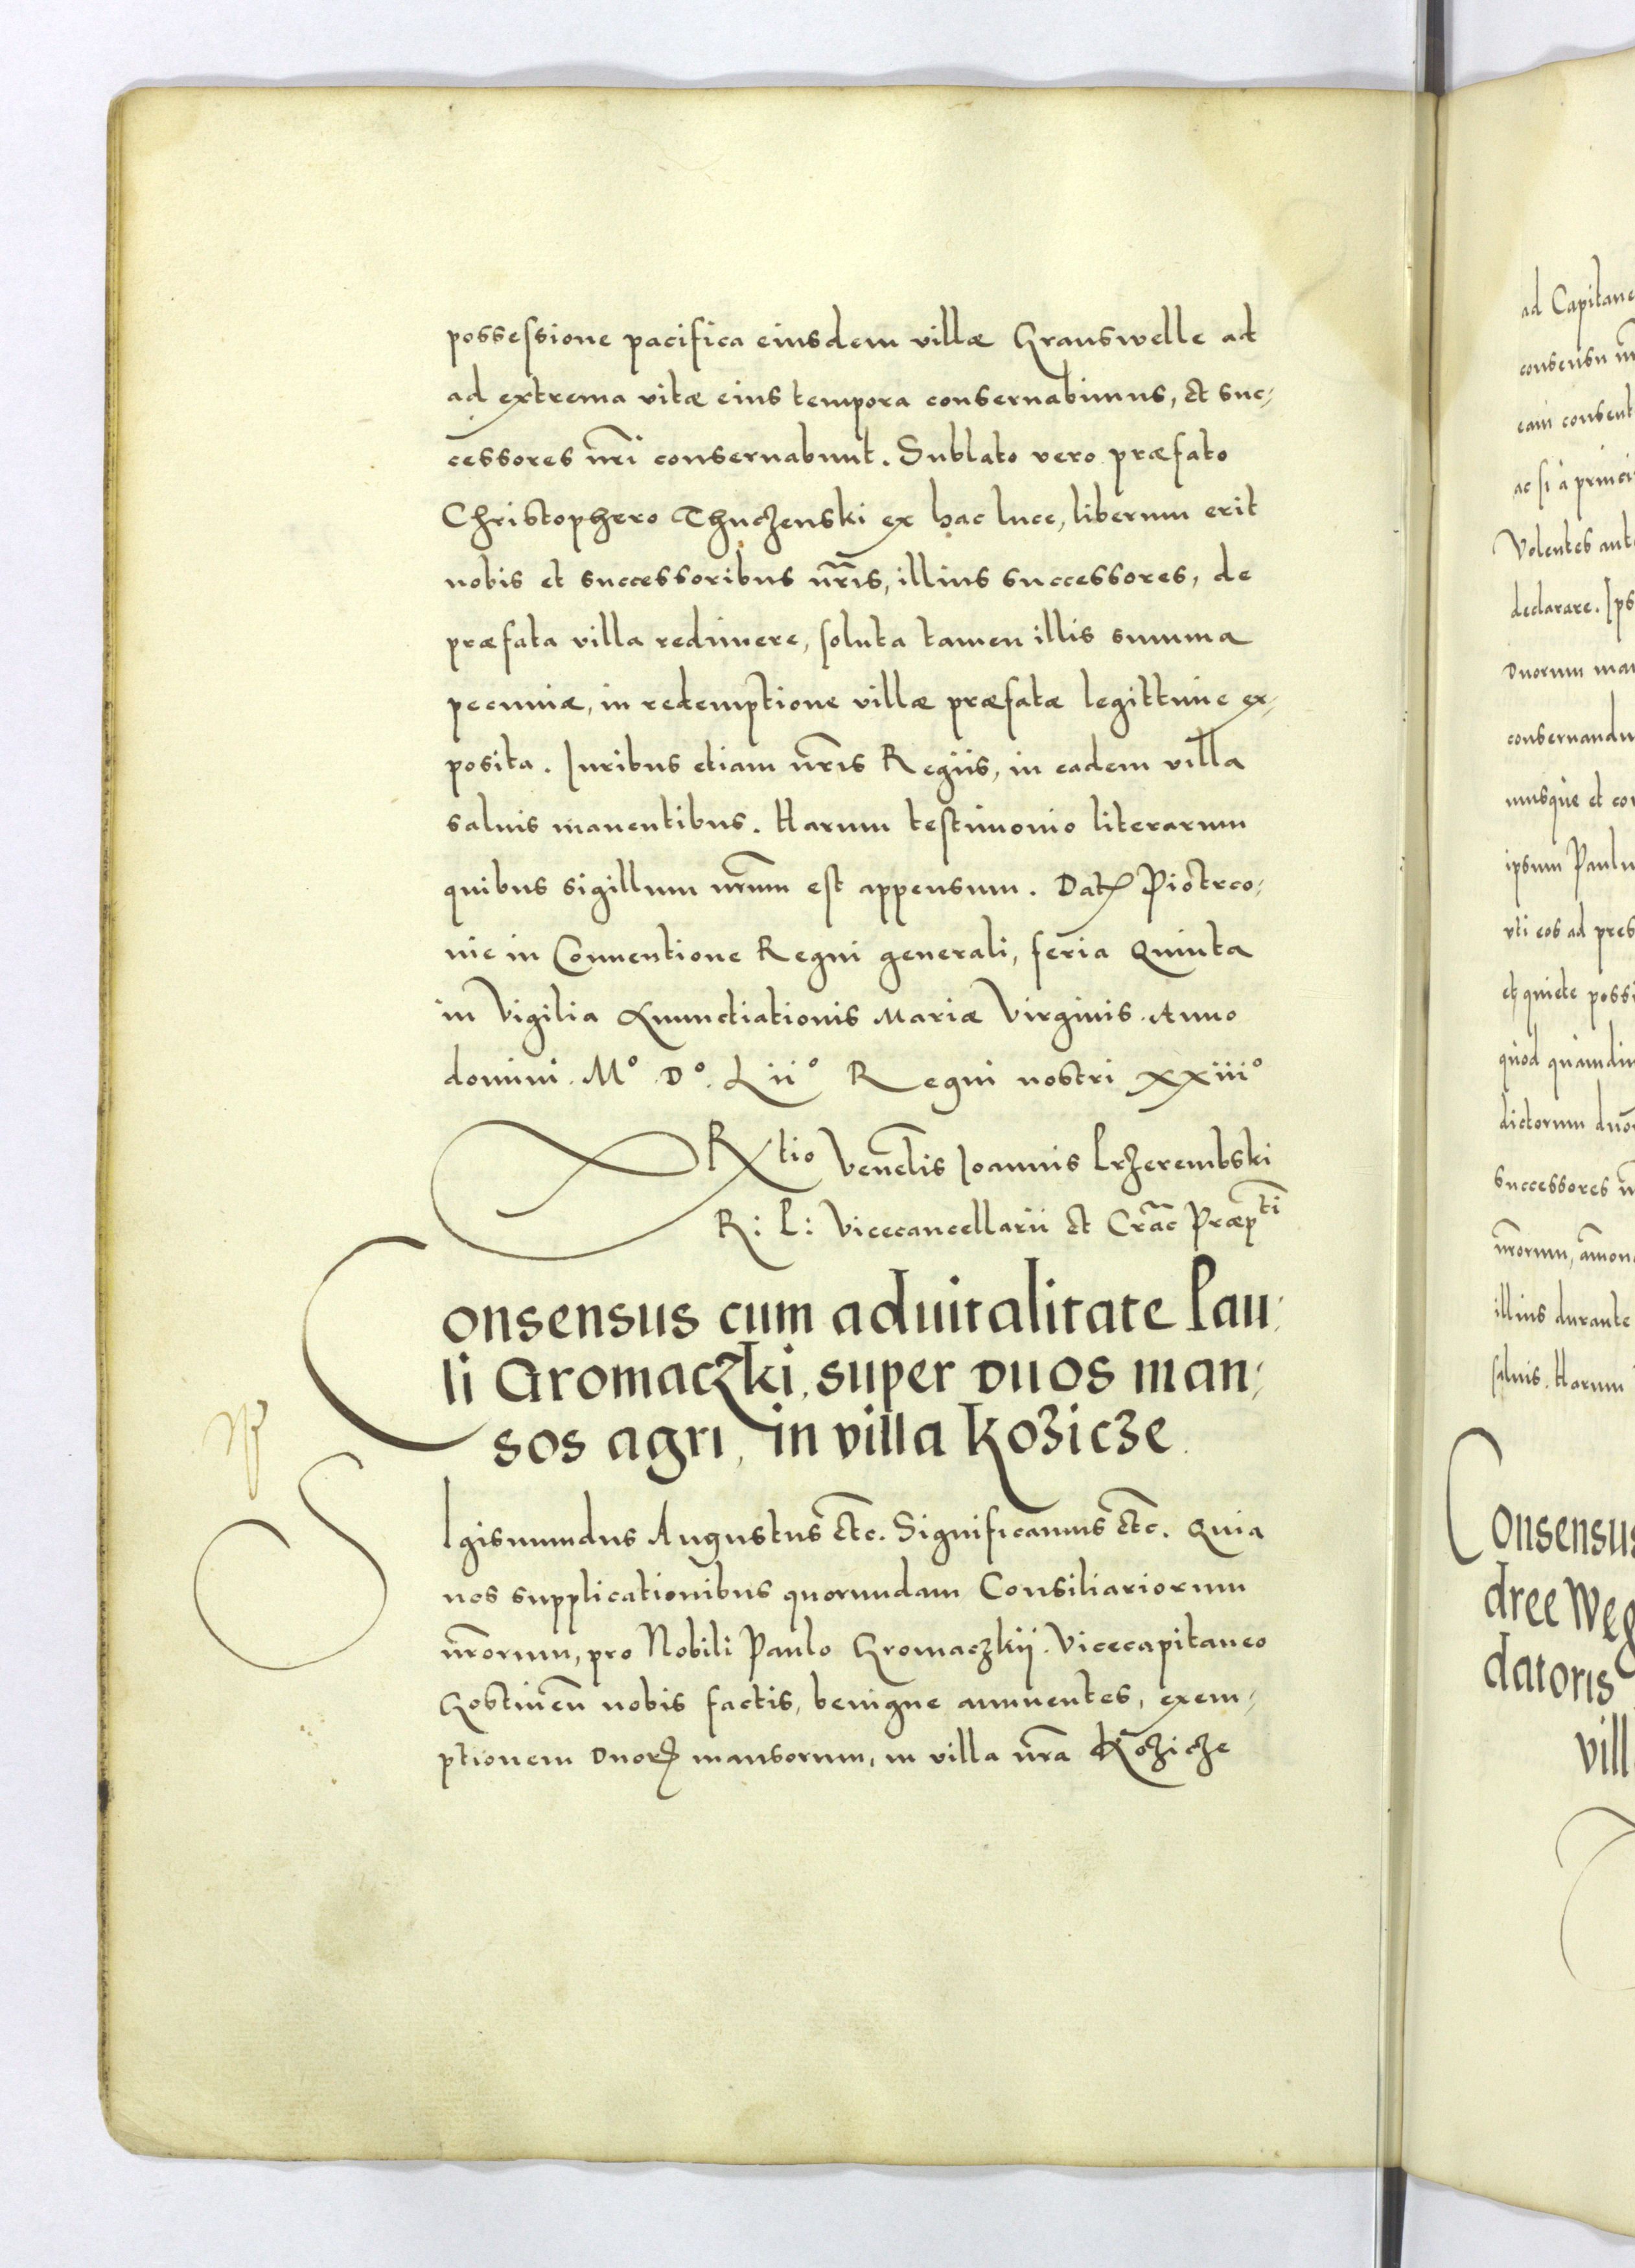 possessione pacifica eiusdem villæ Grauswelle ad
ad extrema vitæ eius tempora conseruabimus, et suc-
cessores nr̃i conseruabunt. Sublato vero præfato
Christophero Thuczenski ex hac luce, liberum erit
nobis et successoribus nr̃is, illius successores, de
præfata villa redimere, soluta tamen illis summa
pecuniæ, in redemptione villæ præfatæ legittime ex-
posita. Iuribus etiam nr̃is Regiis, in eadem villa
saluis manentibus. Harum testimonio literarum
quibus sigillum nr̃um est appensum. Datꝭ Piotrco-
uie in Conuentione Regni generali, feria Quinta
in Vigilia Anunctiationis Mariæ Virginis. Anno
domini. Mº. Dº. Liiº Regni nostri xxiiiº
Rtio Venelis̃ Ioannis Przerembski
R: P: Vicecancellarii et Crac̃ Præpti
Consensus cum aduitalitate Pau-
li Gromaczki, super duos man-
sos agri, in villa Kozicze.
SIgismundus Augustus etc̃. Significamus etc̃. Quia
nos supplicationibus quorundam Consiliariorum
nr̃orum, pro Nobili Paulo Gromaczkij. Vicecapitaneo
Gostineñ nobis factis, benigne annuentes, exem-
ptionem duorꝝ mansorum, in villa nr̃a Kozicze
ad Capitane
consensu
eam consent
ac si a princi
Volentes aut
declarare. Ips
Duorum man
conseruandu
musque et con
ipsum Paulu
vti eos ad pres
et quiete possi
quod quamdiu
dictorum duo
successores
nr̃orum, amou
illius durante
saluis. Harum
Consensus
dree Weg
datoris
vill